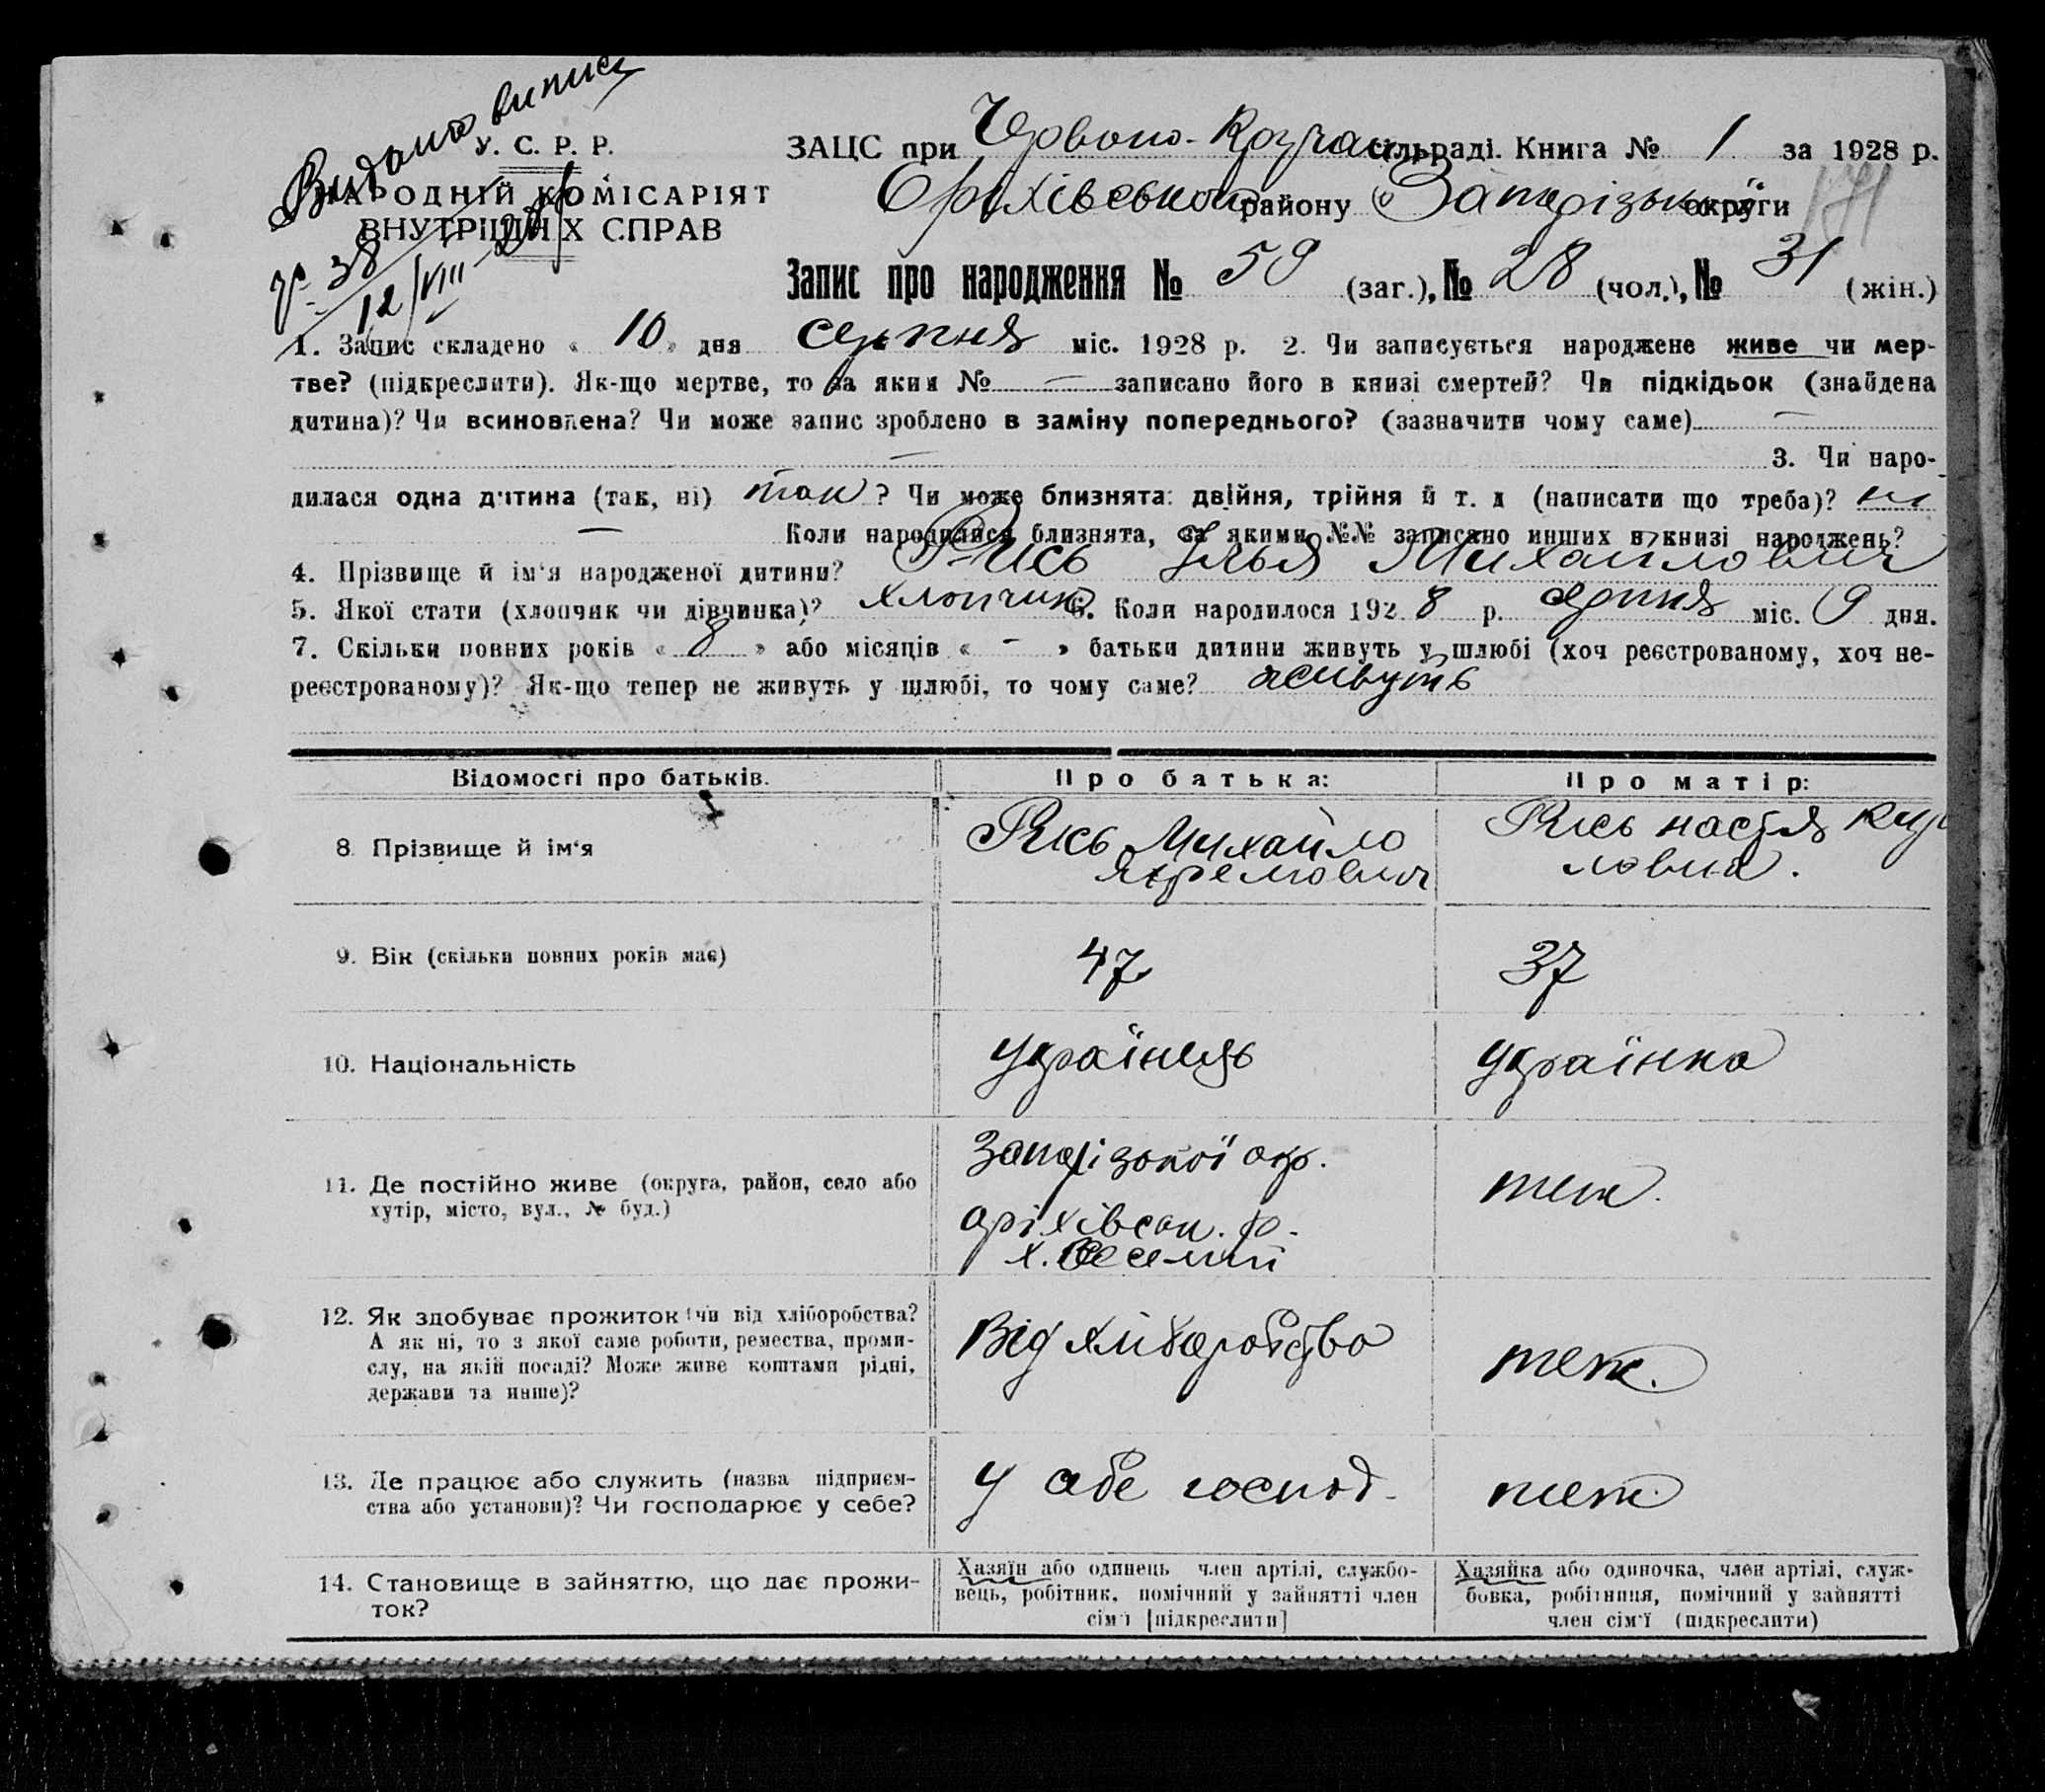 Видано випис
№ 38
12/VIII-28 р
У. С. Р. Р.
НАРОДНІЙ КОМІСАРІЯТ
ВНУТРІШНІХ СПРАВ
ЗАЦС при Червоно- сільраді. Книга № 1 за 1928 р.
Оріхівського району Запорізької округи 171
Запис про народження № 59 (заг.), № 28 (чол.), № 31 (жін.)
1. Запис складено « 10 » дня серпня міс. 1928 р. 2. Чи записується народжене живе чи мер-
тве? (підкреслити). Як-що мертве, то за яким № — записано його в книзі смертей? Чи підкідьок (знайдена
дитина)? Чи всиновлена? Чи може запис зроблено в заміну попереднього? (зазначити чому саме) —
— 3. Чи наро-
дилася одна дитина (так, ні) так? Чи може близнята: двійня, трійня й т. д (написати що треба)? ні
— Коли народилися близнята, за якими №№ записано инших в книзі народжень?
4. Прізвище й ім'я народженої дитини? Рись Илья Михайлович
5. Якої стати (хлопчик чи дівчинка)? хлопчик 6. Коли народилося 1928 р. міс. 9 дня.
7. Скільки повних років « 8 » або місяців « - » батьки дитини живуть у шлюбі (хоч реєстрованому, хоч не-
реєстрованому)? Як-що тепер не живуть у шлюбі, то чому саме? живуть
Відомості про батьків. Про батька: Про матір:
8 Прізвище й ім'я Рись Михайло Рись настя
Яхремович ловна.
9. Вік (скільки повних років має) 47 37
10. Національність українець українка
11. Де постійно живе (округа, район, село або Запорізької окр. теж.
хутір, місто, вул., № буд.) оріхівськ. р.
х. Веселий
12. Як здобуває прожиток (чи від хліборобства? Від хліборобство теж.
А як ні, то з якої саме роботи, ремества, проми-
слу, на якій посаді? Може живе коштами рідні,
держави та инше)?
13. Де працює або служить (назва підприєм- У себе господ. теж
ства або установи)? Чи господарює у себе?
14. Становище в зайняттю, що дає прожи- Хазяїн або одинець член артілі, службо- Хазяйка або одиночка, член артілі, служ-
ток? вець, робітник, помічний у зайнятті член бовка, робітниця, помічний у зайнятті
сім'ї [підкреслити] член сім'ї (підкреслити)